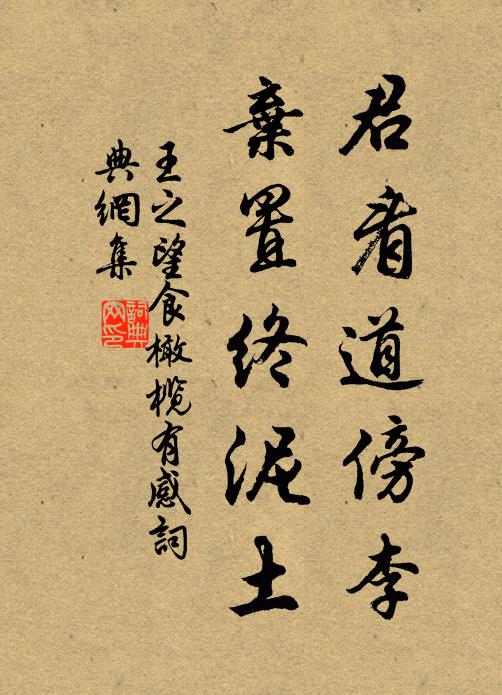 君看道傍李
棄置終泥土
王之望食橄欖有感詞
典網集
詞典
网印